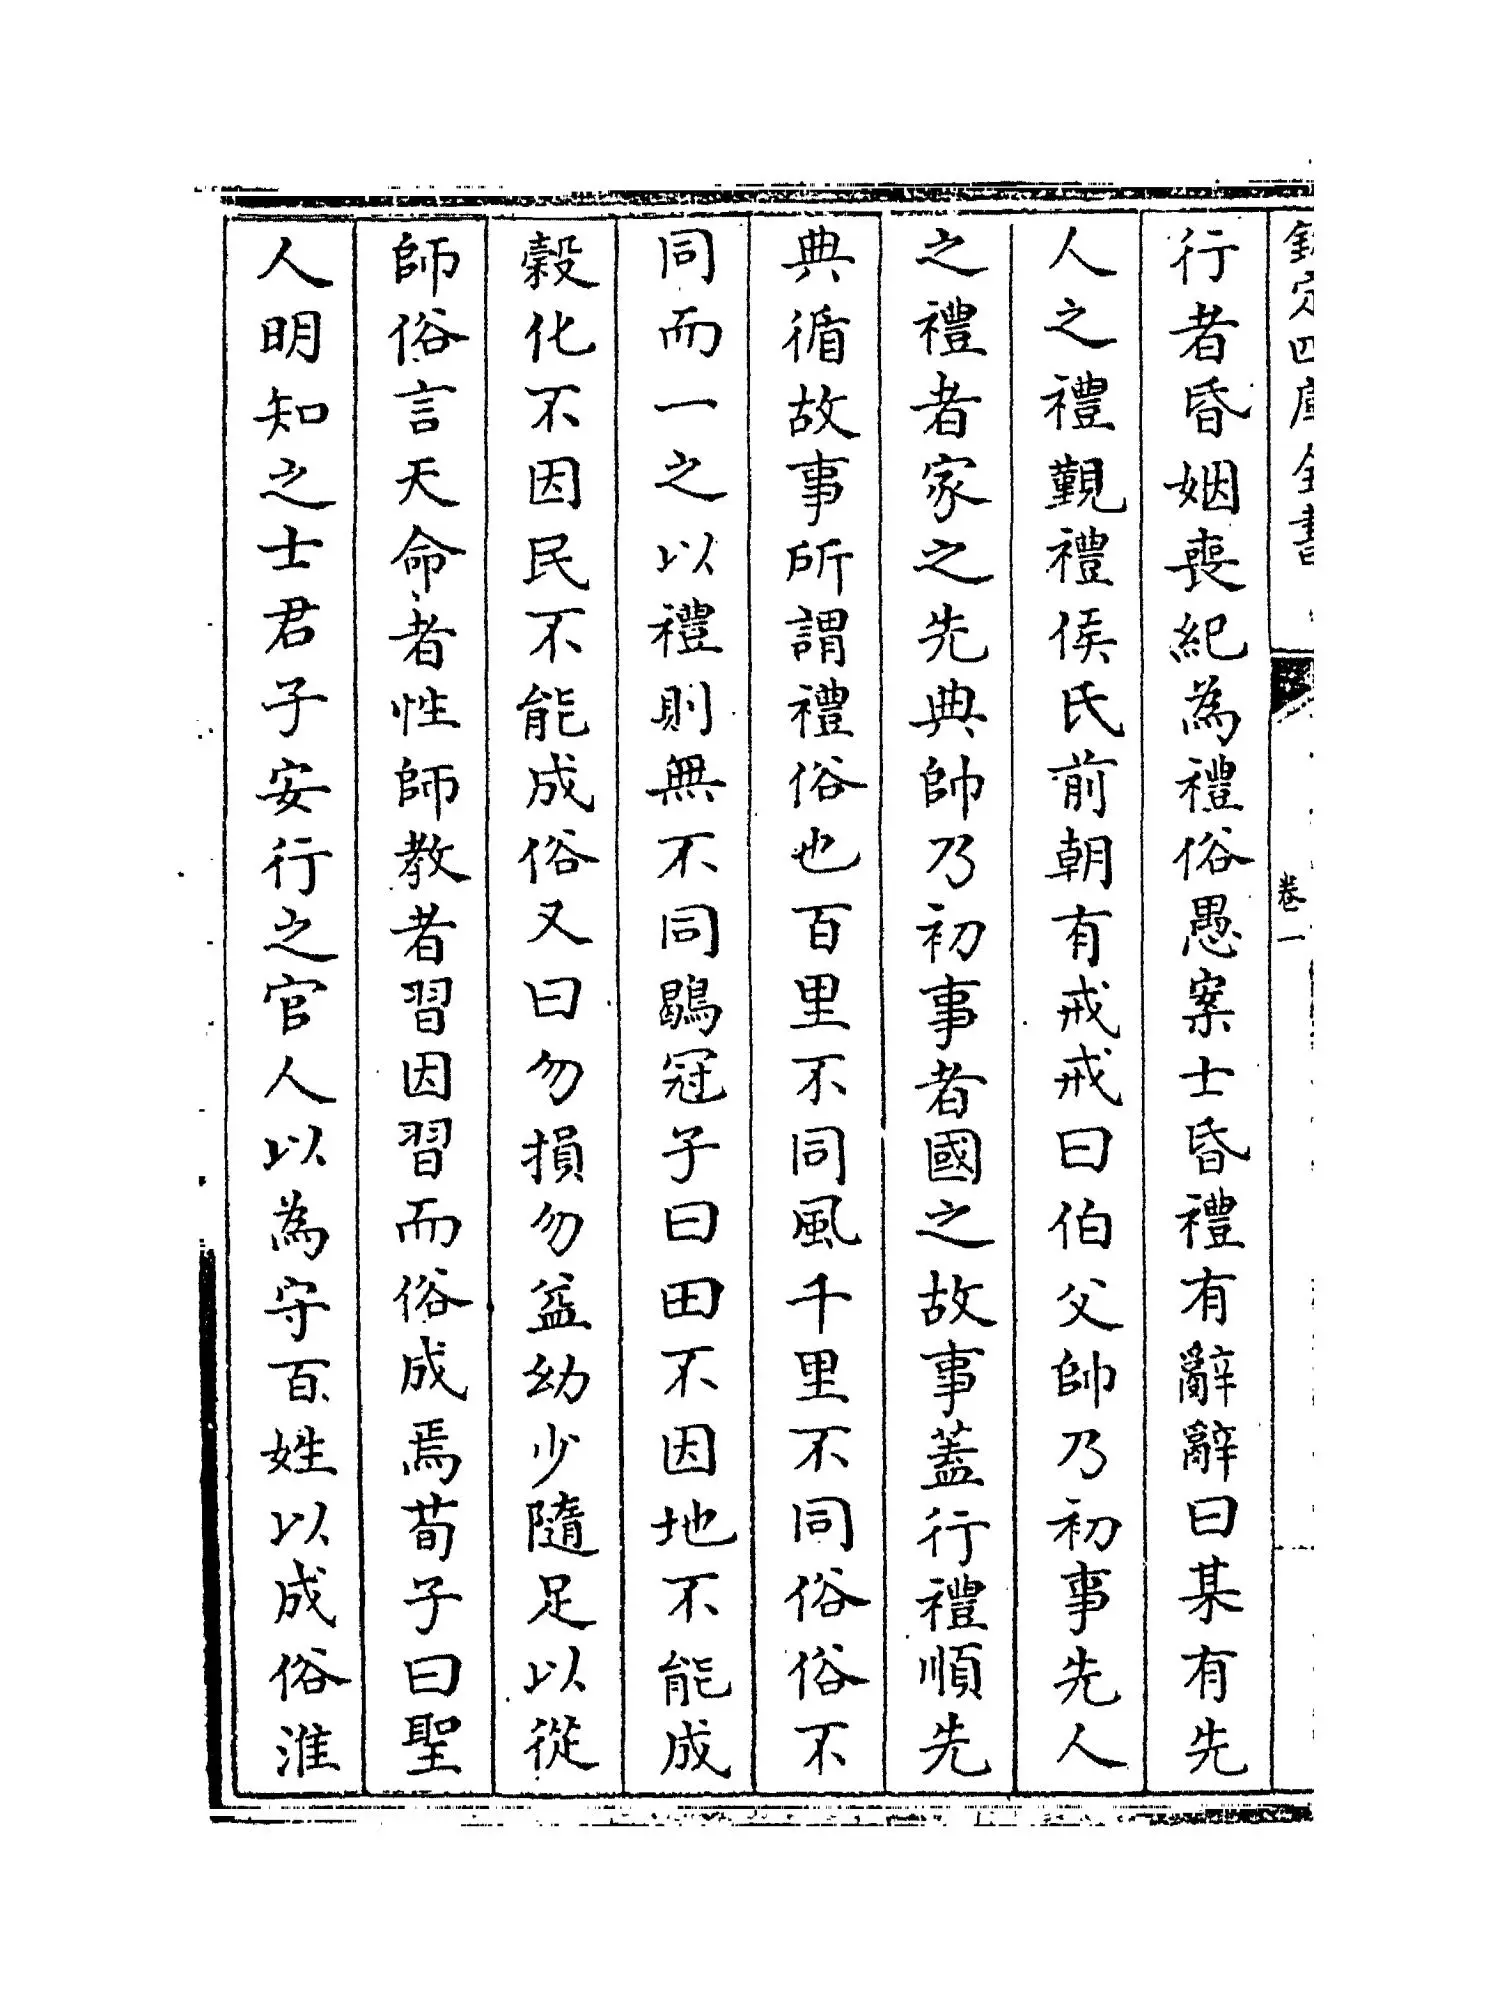 欽定四庫全書
卷一
行者昏姻喪紀為禮俗愚案士昏禮有辭辭曰某有先
人之禮覲禮侯氏前朝有戒戒曰伯父帥乃初事先人
之禮者家之先典帥乃初事者國之故事蓋行禮順先
典循故事所謂禮俗也百里不同風千里不同俗俗不
同而一之以禮則無不同鶡冠子曰田不因地不能成
穀化不因民不能成俗又曰勿損勿益幼少隨足以從
師俗言天命者性師教者習因習而俗成焉荀子曰聖
人明知之士君子安行之官人以為守百姓以成俗淮